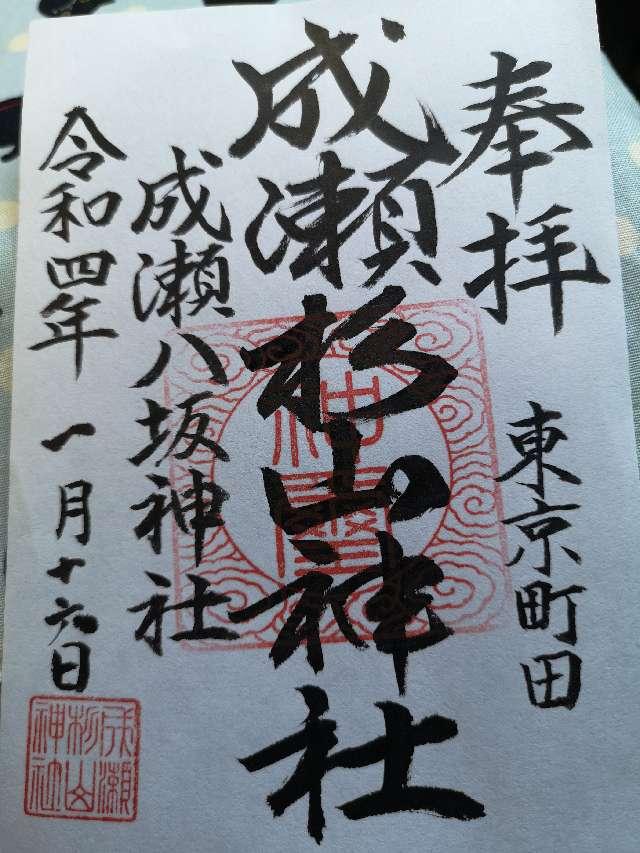 奉拝
東京町田
成瀬杉山神社
成瀬八坂神社
令和四年一月十六日
成瀬
杉山
神社